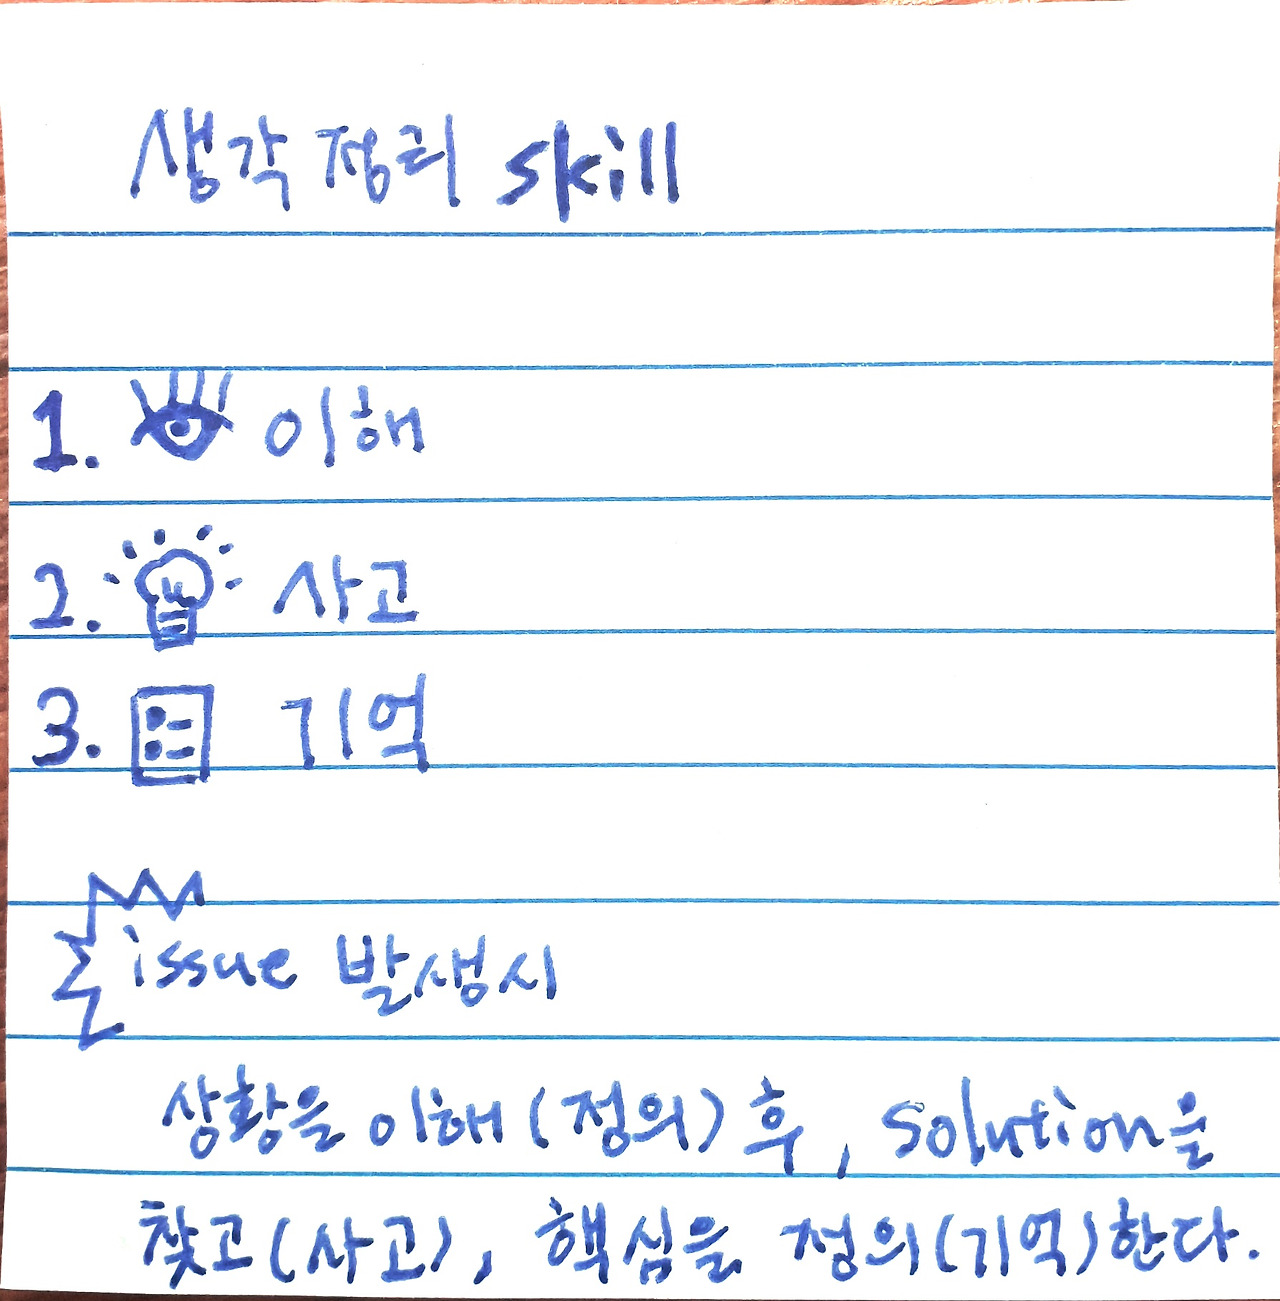 생각정리 skill
1. 이해
2. 사고
3. 기억
issue 발생시
상황을 이해(정의)후, solution을
찾고(사고), 핵심을 정의(기억)한다.